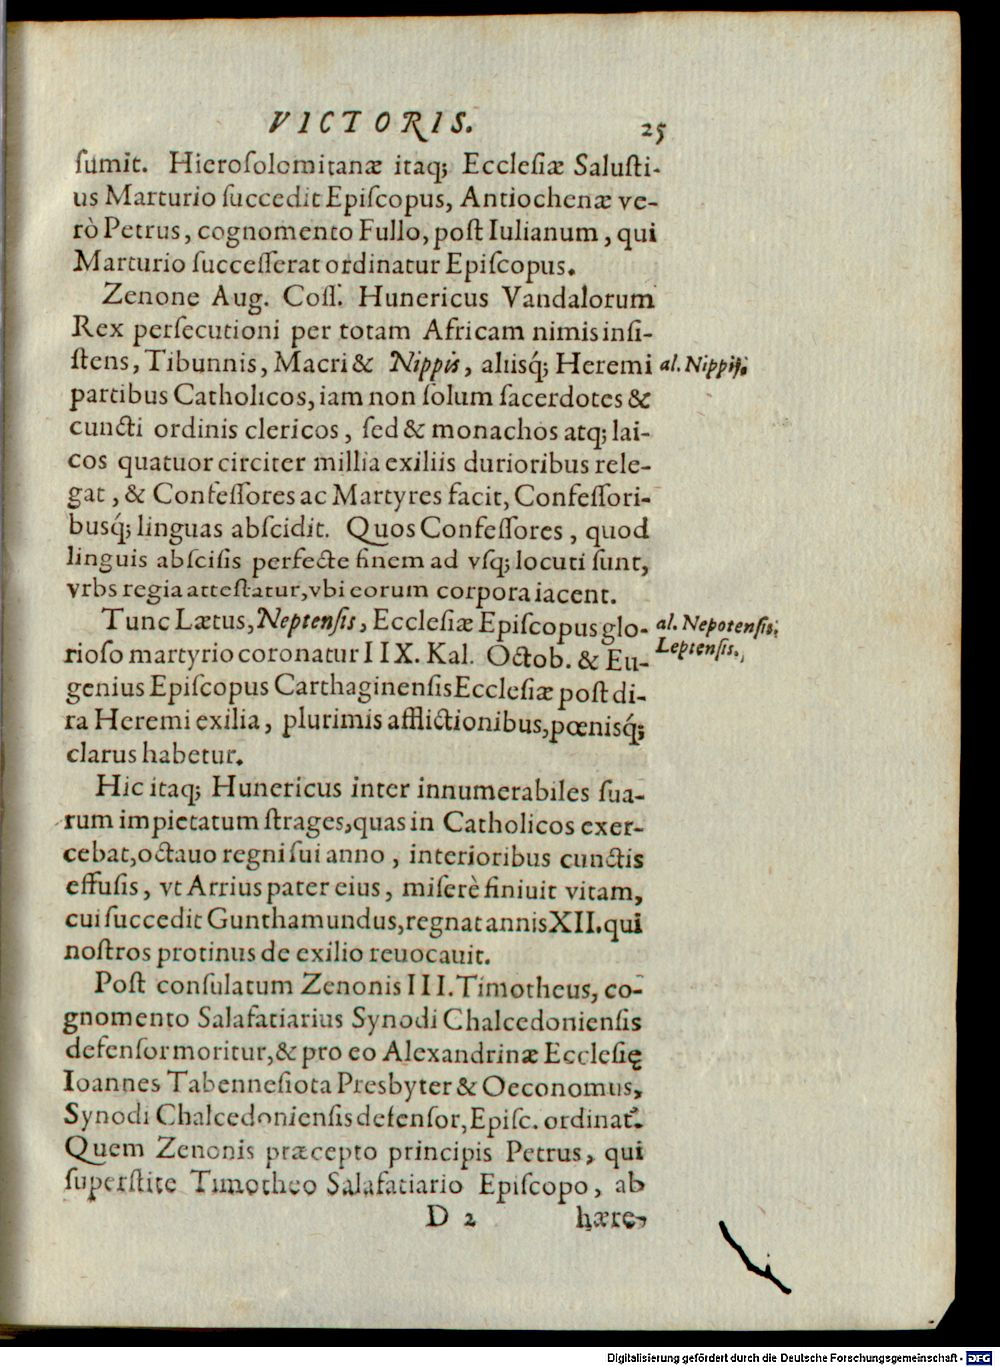 VICTORIS. 25
sumit. Hierosolomitanæ itaq; Ecclesiæ Salusti-
us Marturio succedit Episcopus, Antiochenæ ve-
rò Petrus, cognomento Fullo, post Iulianum, qui
Marturio successerat ordinatur Episcopus.
Zenone Aug. Coss. Hunericus Vandalorum
Rex persecutioni per totam Africam nimis insi-
stens, Tibunnis, Macri & Nippis, aliisq́; Heremi al. Nippis.
partibus Catholicos, iam non solum sacerdotes &
cuncti ordinis clericos, sed & monachos atq; lai-
cos quatuor circiter millia exiliis durioribus rele-
gat, & Confessores ac Martyres facit, Confessori-
busq́; linguas abscidit. Quos Confessores, quod
linguis abscisis perfecte finem ad vsq; locuti sunt,
vrbs regia attestatur, vbi eorum corpora iacent.
Tunc Lætus, Neptensis, Ecclesiæ Episcopus glo- al. Nepotensis.
rioso martyrio coronatur IIX. Kal. Octob. & Eu- Leptensis.
genius Episcopus Carthaginensis Ecclesiæ post di-
ra Heremi exilia, plurimis afflictionibus, pœnisq́;
clarus habetur.
Hic itaq; Hunericus inter innumerabiles sua-
rum impietatum strages, quas in Catholicos exer-
cebat, octauo regni sui anno, interioribus cunctis
effusis, vt Arrius pater eius, miserè finiuit vitam,
cui succedit Gunthamundus, regnat annis XII. qui
nostros protinus de exilio reuocauit.
Post consulatum Zenonis III. Timotheus, co-
gnomento Salafatiarius Synodi Chalcedoniensis
defensor moritur, & pro eo Alexandrinæ Ecclesię
Ioannes Tabennesiota Presbyter & Oeconomus,
Synodi Chalcedoniensis defensor, Episc. ordinat'.
Quem Zenonis præcepto principis Petrus, qui
superstite Timotheo Salafatiario Episcopo, ab
D 2 hære-
Digitalisierung gefördert durch die Deutsche Forschungsgemeinschaft - DFG